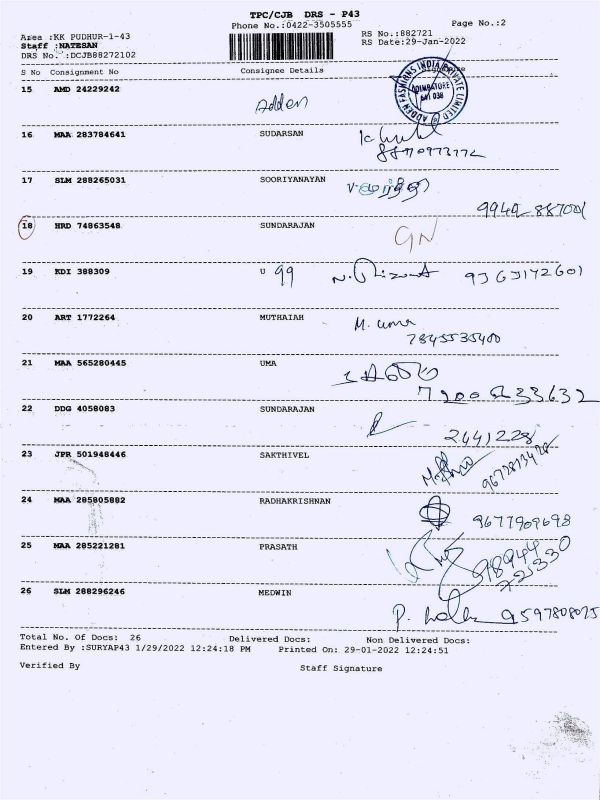 TPC/CJB DRS - P43
Phone No.:0422-3505555
Page No.:2
Area :KK PUDHUR-1-43
RS No.:882721
Staff :NATESAN
RS Date:29-Jan-2022
DRS No. :DCJB88272102
S No Consignment No Consignee Details Signature
15 AMD 24229242 Adden
ADDEN FASHIONS INDIA PRIVATE LIMITED
COIMBATORE
641 038
16 MAA 283784641 SUDARSAN
17 SLM 288265031 SOORIYANAYAN
18 HRD 74863548 SUNDARAJAN GN
19 KDI 388309 U 99
20 ART 1772264 MUTHAIAH M. uma
7845535400
21 MAA 565280445 UMA
22 DDG 4058083 SUNDARAJAN
2441228
23 JPR 501948446 SAKTHIVEL
24 MAA 285805882 RADHAKRISHNAN
9677909698
25 MAA 285221281 PRASATH
26 SLM 288296246 MEDWIN
9597808075
Total No. Of Docs: 26 Delivered Docs: Non Delivered Docs:
Entered By :SURYAP43 1/29/2022 12:24:18 PM Printed On: 29-01-2022 12:24:51
Verified By Staff Signature